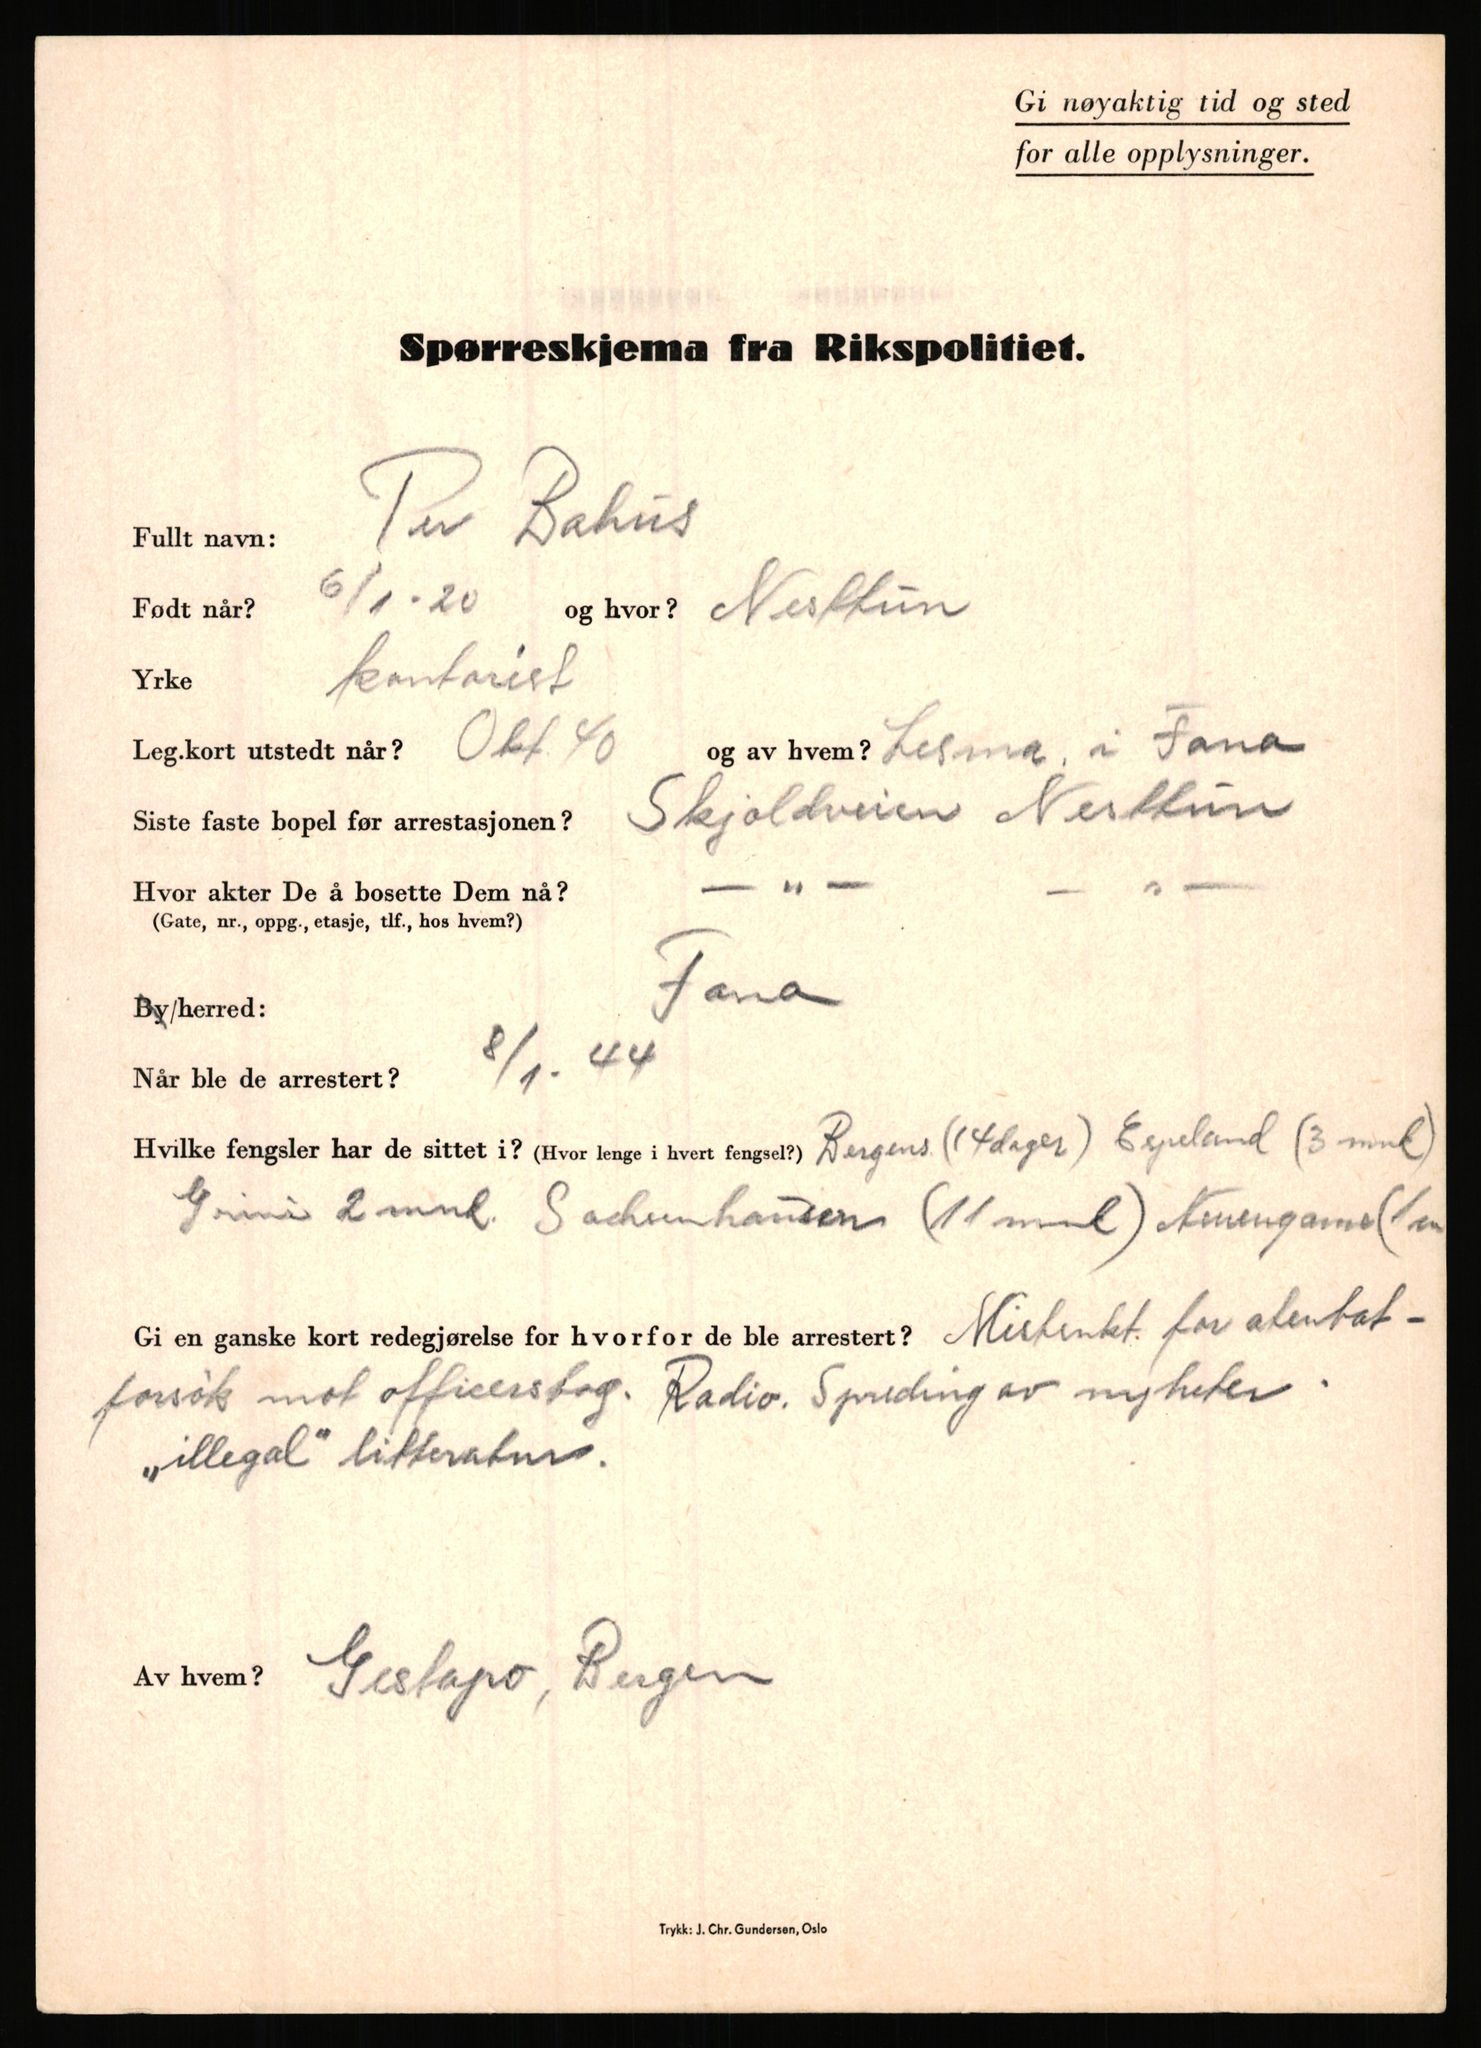 Gi nøyaktig tid og sted
for alle opplysninger.
Spørreskjema fra Rikspolitiet.
Fullt navn: Per Bahus
Født når? 6/1-20 og hvor? Nesttun
Yrke kontorist
Leg.kort utstedt når? Okt. 40 og av hvem? Lesma. i Fana
Siste faste bopel før arrestasjonen? Skjoldveien Nesttun
Hvor akter De å bosette Dem nå? — " — — " —
(Gate, nr., oppg., etasje, tlf., hos hvem?)
By/herred: Fana
Når ble de arrestert? 8/1-44
Hvilke fengsler har de sittet i? (Hvor lenge i hvert fengsel?) Bergens (14 dager) Espeland (3 mnd)
Grini 2 mnd. Sachsenhausen (11 mnd) Neuengame (1 m
Gi en ganske kort redegjørelse for hvorfor de ble arrestert? Mistenkt. for atentat-
forsök mot officerstog. Radio. Spreding av nyheter.
„illegal" litteratur.
Av hvem? Gestapo, Bergen
Trykk: J. Chr. Gundersen, Oslo